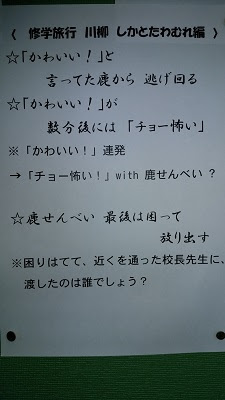 〈 修学旅行 川柳 しかとたわむれ編 〉
☆「かわいい！」と
言ってた鹿から 逃げ回る
☆「かわいい！」が
数分後には「チョー怖い」
※「かわいい！」連発
→「チョー怖い！」with 鹿せんべい？
☆鹿せんべい 最後は困って
放り出す
※困りはてて、近くを通った校長先生に、
渡したのは誰でしょう？